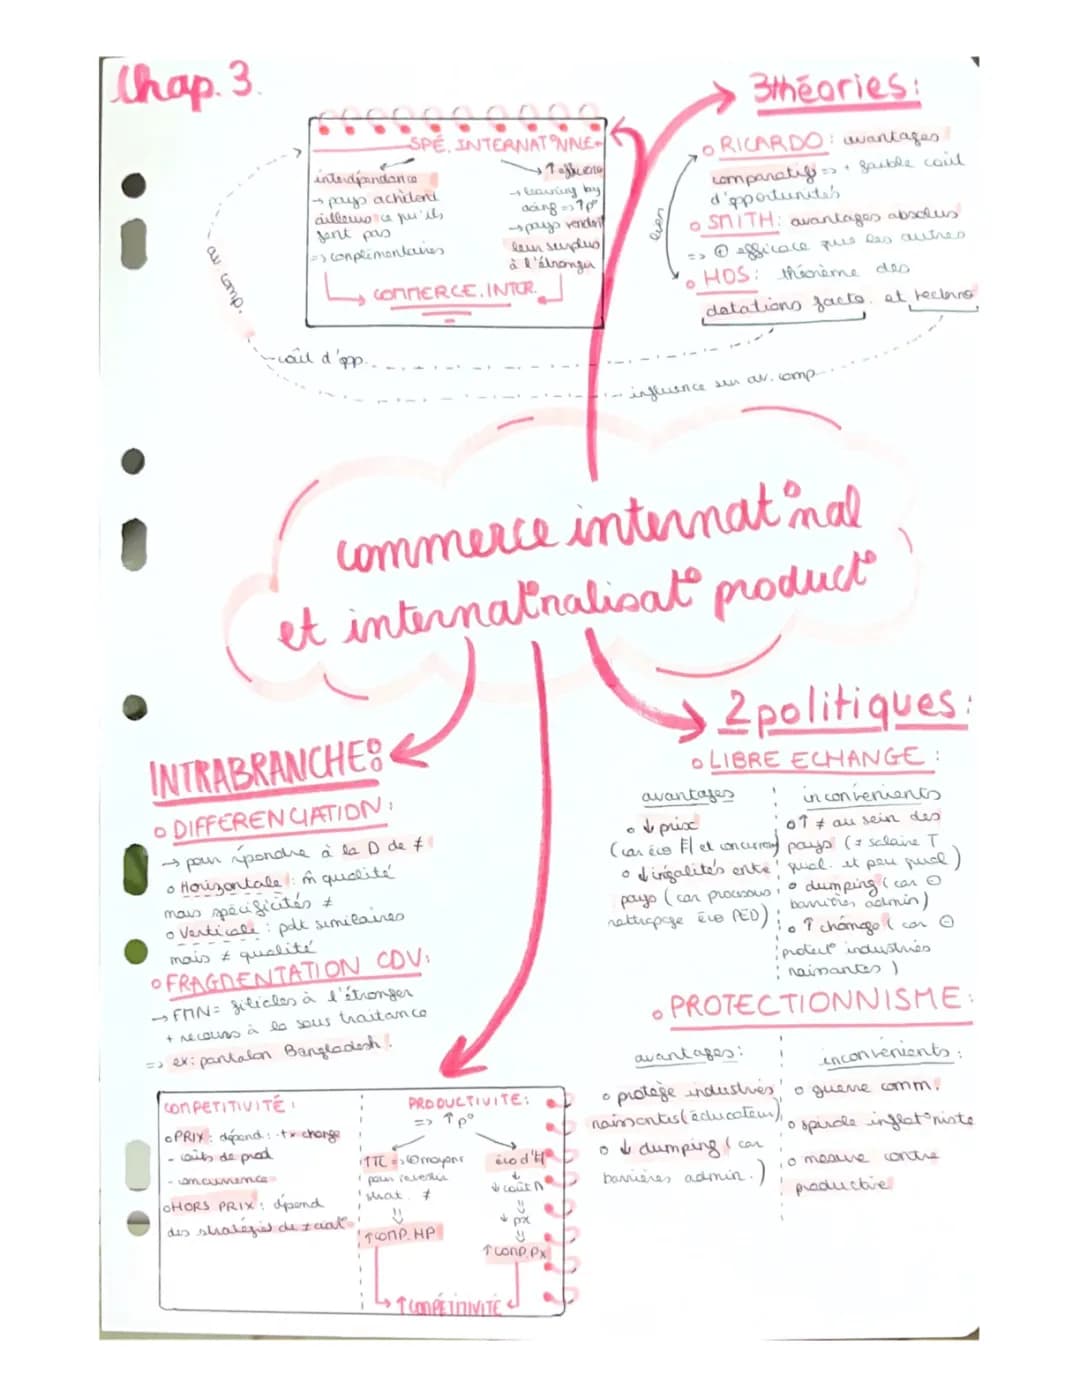 Chap. 3.
SPÉ. INTERNAT°NALE
interdépendance
→ pays achètent
ailleurs ce qu'ils
font pas
=> complémentaires
→ learning by
doing => ↑p°
→ pays vendent
leur surplus
à l'étranger
COMMERCE. INTER.
av. comp.
coût d'opp.
influence sur av. comp.
3 théories:
o RICARDO: avantages
comparatifs => + faible coût
d'opportunités
o SMITH: avantages absolus
=> ⊕ efficace que les autres
o HOS: théorème des
dotations facto. et techno
lien
commerce internat°nal
et internat°nalisat° product°
INTRABRANCHE:
o DIFFERENCIATION:
→ pour répondre à la D de ≠
o Horizontale: m̂ qualité
mais spécificités ≠
o Verticale: pdt similaires
mais ≠ qualité
o FRAGMENTATION CDV:
→ FMN = filiales à l'étranger
+ recours à la sous traitance
=> ex: pantalon Bangladesh.
2 politiques:
o LIBRE ECHANGE:
avantages
o ↓ prix
(car éco El et concurren)
o ↓ inégalités entre
pays (car processus
rattrapage éco PED)
inconvenients
o ↑ ≠ au sein des
pays (≠ salaire T
qual. et peu qual)
o dumping (car ⊖
barrières admin)
o ↑ chômage (car ⊖
protect° industries
naissantes)
o PROTECTIONNISME:
avantages:
o protège industries
naissantes (éducateur)
o ↓ dumping (car
barrières admin.)
inconvénients:
o guerre comm.
o spirale inflat°niste
o mesure contre
productive
COMPETITIVITÉ:
o PRIX: dépend: - tx change
- coûts de prod
- concurrence
o HORS PRIX: dépend
des stratégies de ≠ciat°
PRODUCTIVITE:
=> ↑p°
TTC => ⊕ moyens
pour investir
strat. ≠
⇓
↑ COMP. HP
éco d'El
↓
↓ coût
⇓
↓ px
⇓
↑ COMP. Px
↑ COMPÉTITIVITÉ